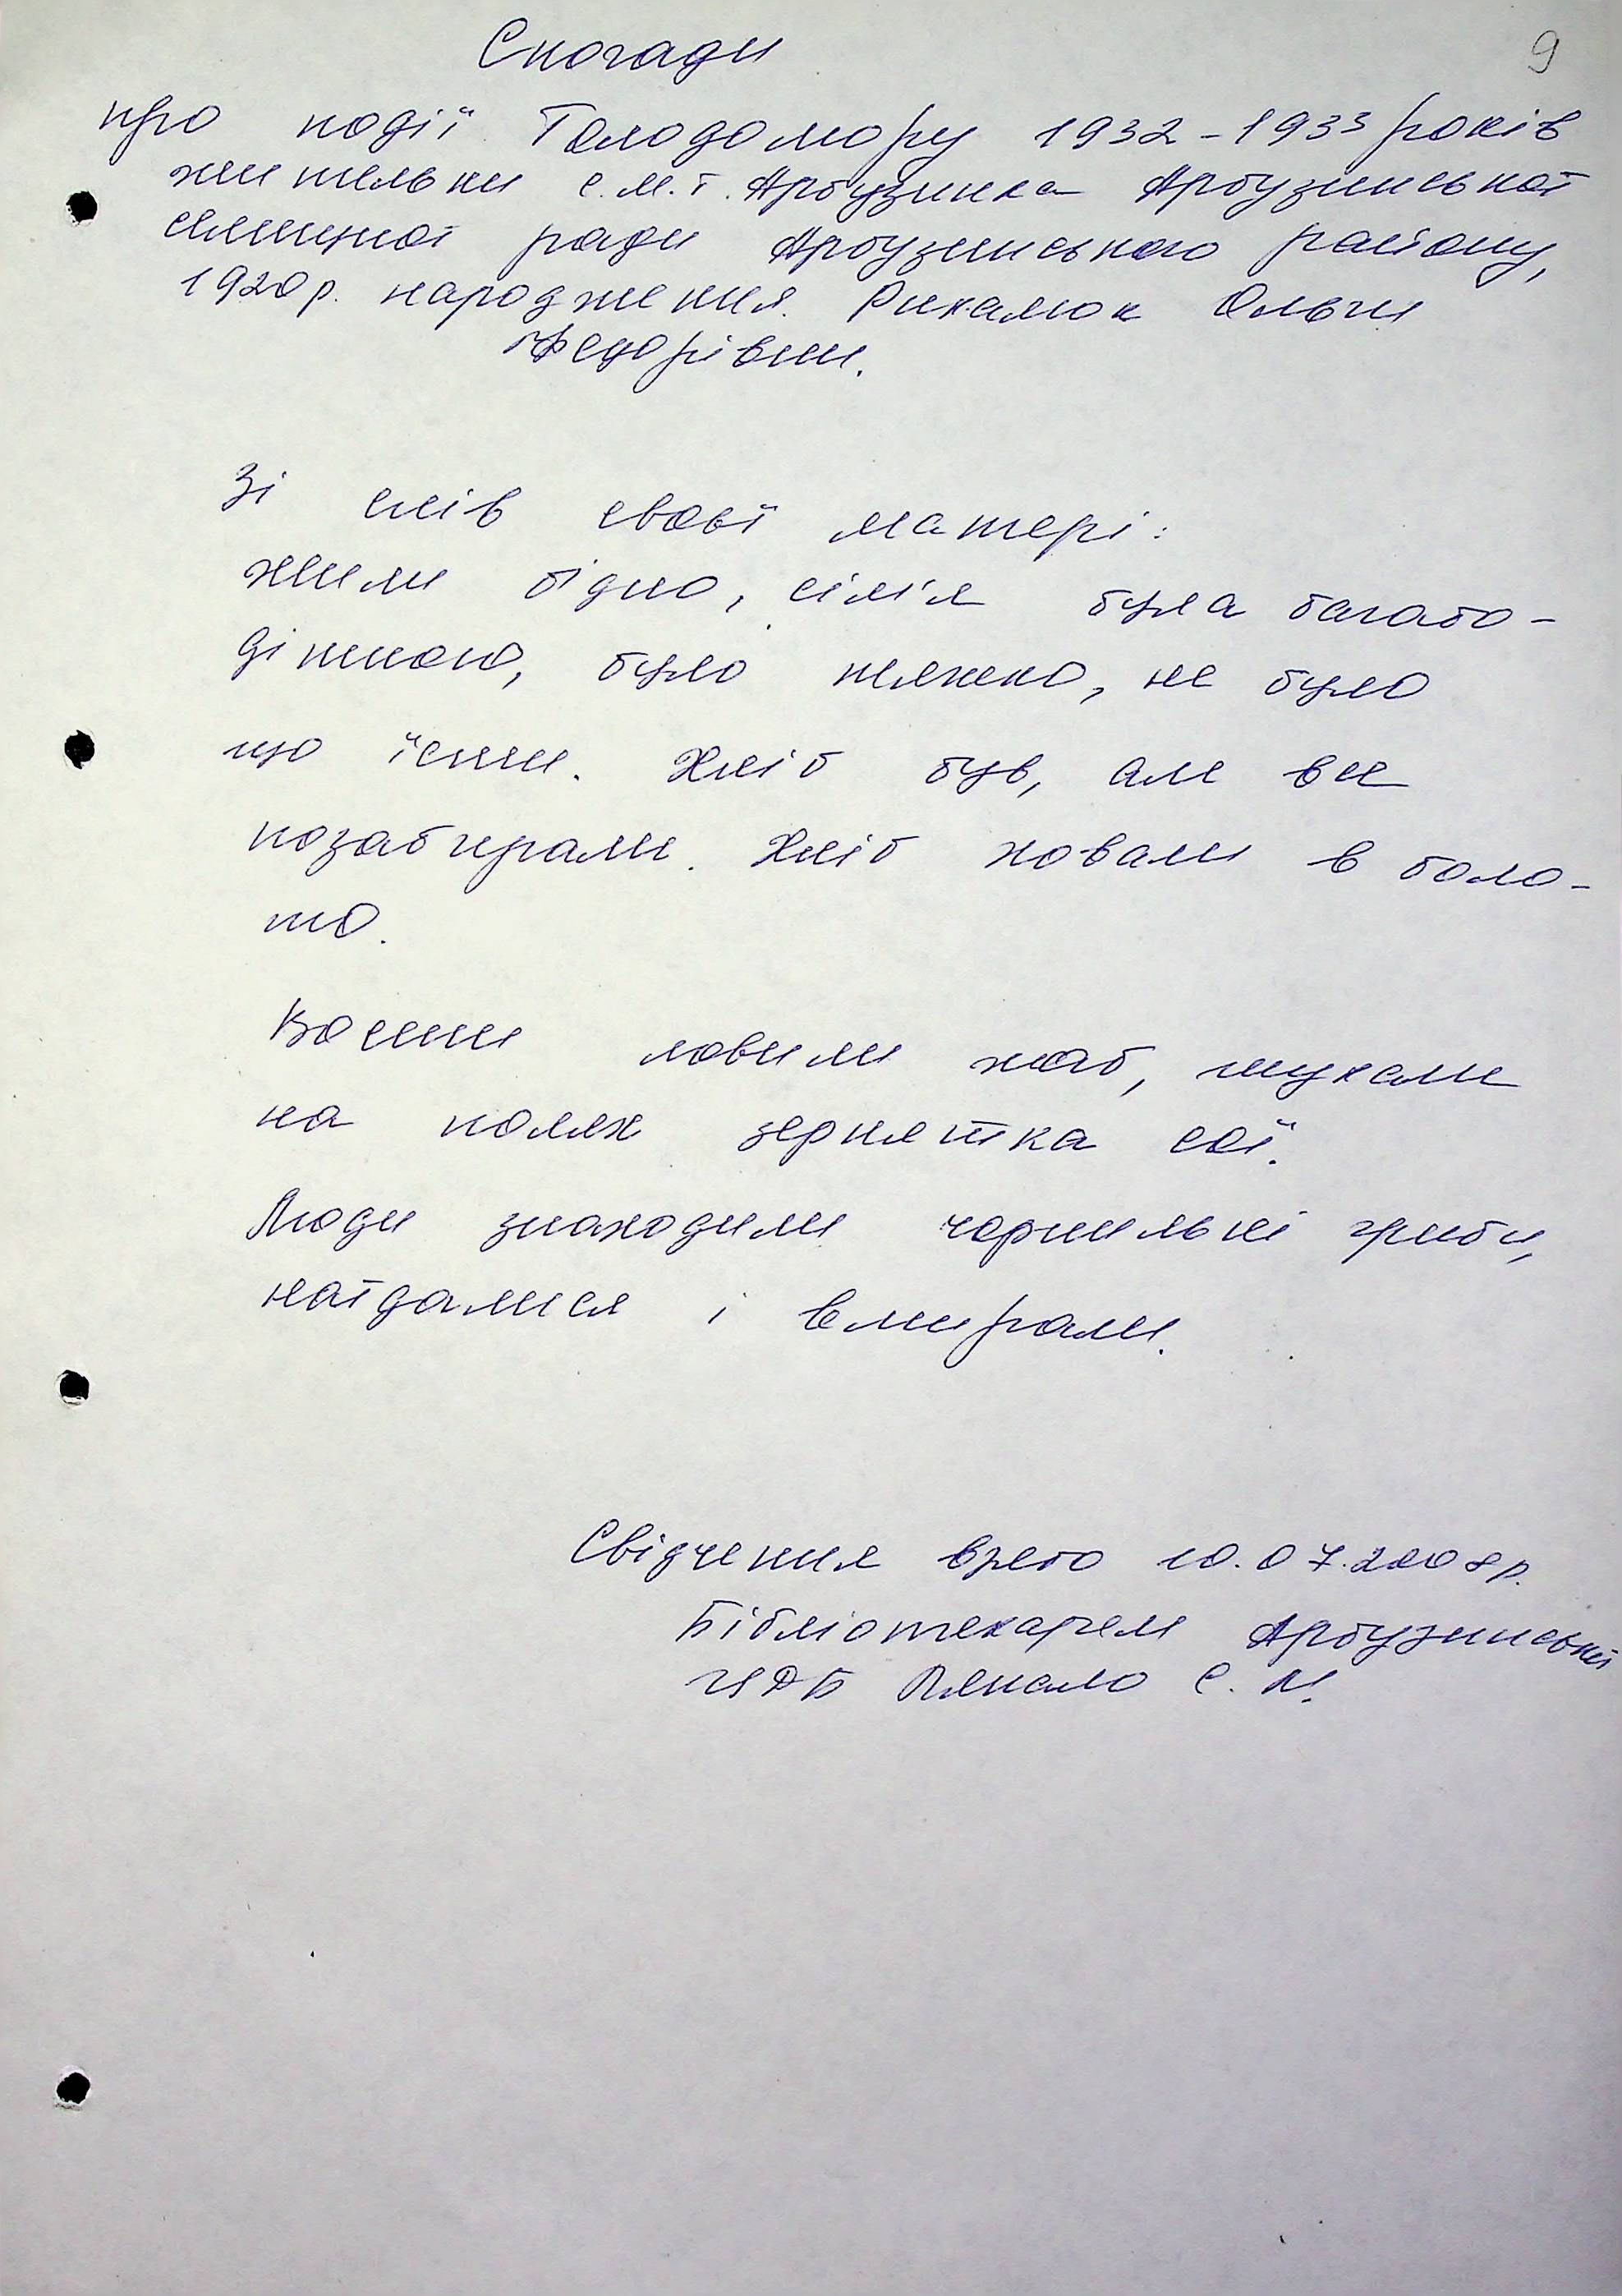 Спогади
9
про події Голодомору 1932-1933 років
жительки с.м.т. Арбузинка Арбузинської
селищної ради Арбузинського району,
1920 р. народження. Рихалюк Ольги
Федорівни.
Зі слів своєї матері:
жили бідно, сім'я була багато-
дітною, було тяжко, не було
що їсти. Хліб був, але все
позабирали. Хліб ховали в боло-
то.
Восени ловили жаб, шукали
на полях зернятка сої.
Люди знаходили чорнильні гриби,
наїдалися і вмирали.
Свідчення взято 10.07.2008 р.
Бібліотекарем Арбузинської
ЦДБ С. М.